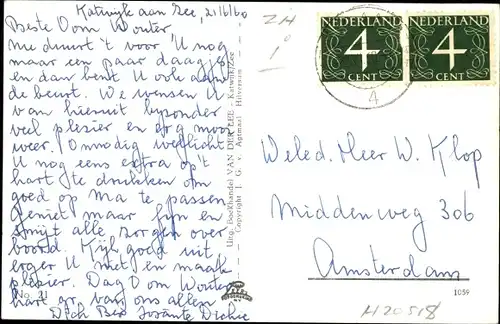 Katwijk aan Zee, 21/6/60
Beste Oom Wouter
Nu duurt 't voor U nog
maar een paar daagjes
en dan bent U ook aan
de beurt. We wensen U
van hieruit byzonder
veel plezier en erg mooi
weer. Onnodig wellicht
U nog eens extra op 't
hart te drukken om
goed op Ma te passen.
Geniet maar fijn en
smijt alle zorgen over
boord. Kijk goed uit
erger U niet en maak
plezier. Dag Oom Wouter
hart. gr. van ons allen
Dick Bep
No. 21
Uitg. Boekhandel VAN DER LEE - Katwijk/Zee
Copyright J. G. v. Agtmaal - Hilversum
NEDERLAND
4
CENT
NEDERLAND
4
CENT
4
Weled. Heer W. Klop
Middenweg 306
Amsterdam
1059
H20518